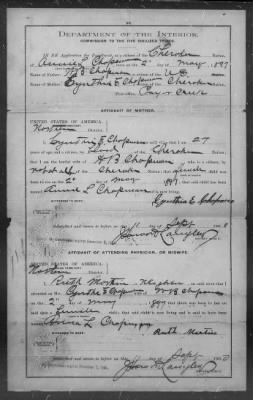 DEPARTMENT OF THE INTERIOR,
COMMISSION TO THE FIVE CIVILIZED TRIBES.
IN RE Application for Enrollment, as a citizen of the Cherokee Nation,
of Annie L Chapman, born on the 2" day of May, 1897
Name of Father: H B Chapman a citizen of the U S
Name of Mother: Cynthia E Chapman a citizen of the Cherokee Nation.
Post-office
AFFIDAVIT OF MOTHER.
UNITED STATES OF AMERICA,
Northern District.
I, Cynthia E Chapman, on oath state that I am 27
years of age and a citizen by blood, of the Cherokee Nation;
that I am the lawful wife of H B Chapman, who is a citizen, by
not at all of the Cherokee Nation; that a female child was
born to me on 2" day of May, 1897; that said child has been named
Annie L Chapman, and is now living.
Cynthia E Chapman
WITNESSES TO MARK:
Subscribed and sworn to before me this 11 day of Sept
AFFIDAVIT OF ATTENDING PHYSICIAN, OR MIDWIFE.
UNITED STATES OF AMERICA,
Northern District.
I, Ruth
attended on Mrs. Cynthia Chapman, wife of H B Chapman on
the 2" day of May, 1897; that there was born to her on said
date a female child; that said child is now living and is said to have been
named Annie L Chapman
Ruth
WITNESSES TO MARK:
Subscribed and sworn to before me this day of Sept